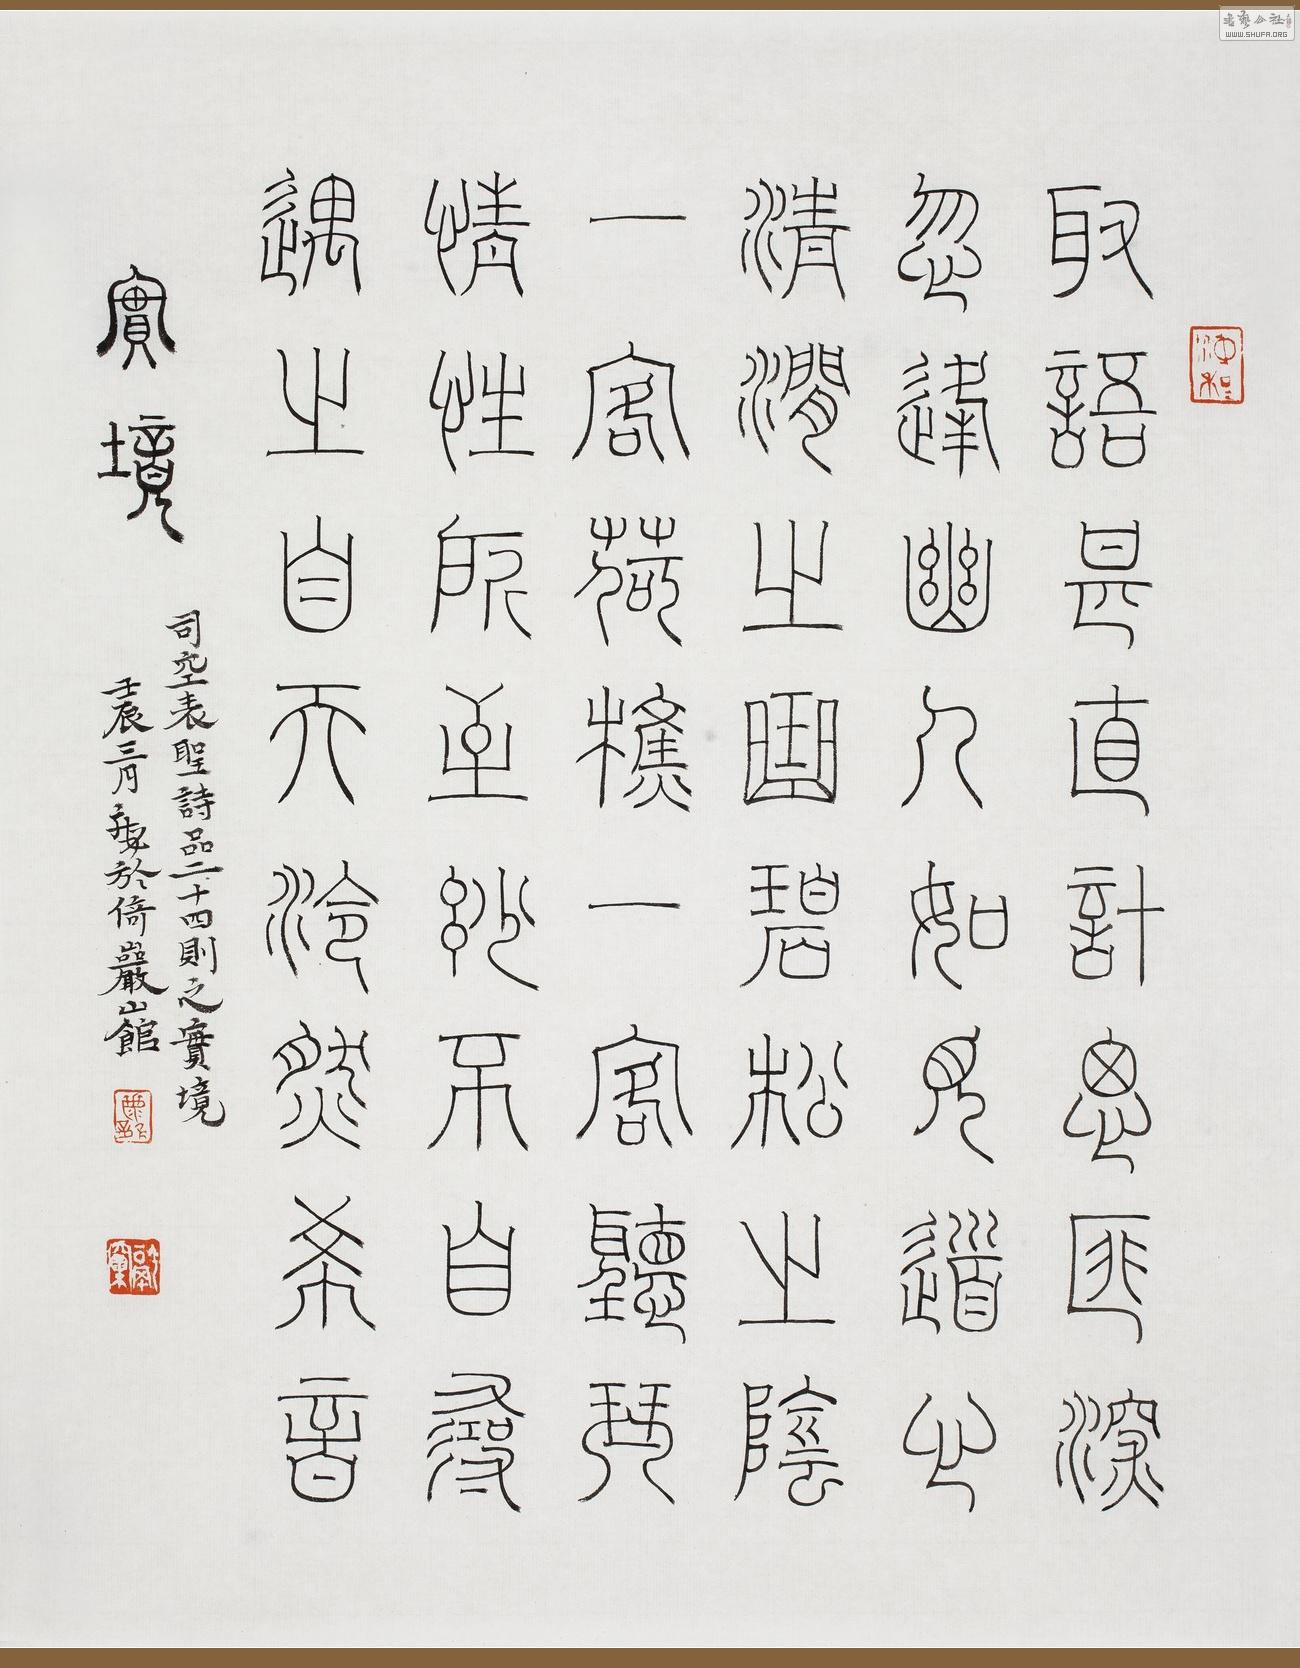 取語甚直計思匪深
忽逢幽人如見道心
清澗之曲碧松之陰
一客荷樵一客聽琴
情性所至玅不自尋
遇之自天泠然希音
實境
司空表聖詩品二十四則之實境
壬辰三月於倚巖山館
書藝公社
WWW.SHUFA.ORG